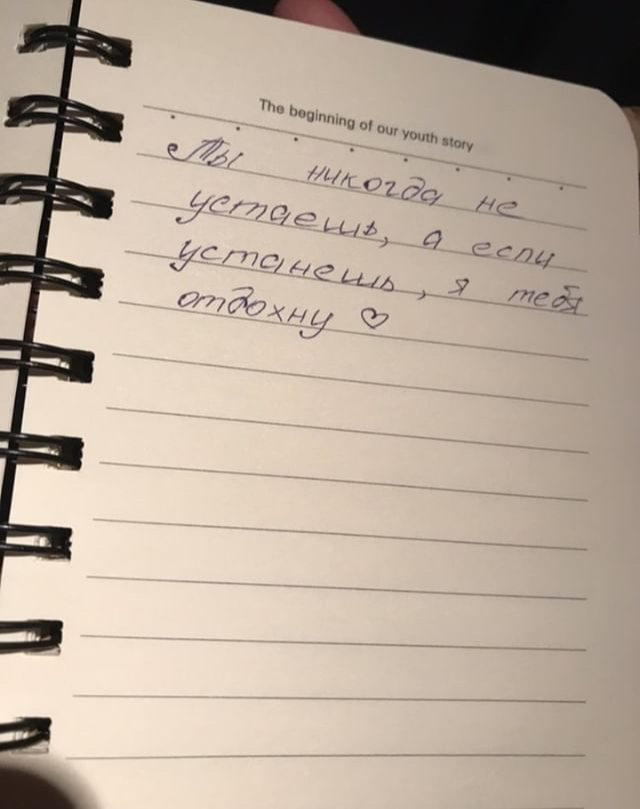 The beginning of our youth story
Ты никогда не
устаешь, а если
устанешь, я тебя
отдохну ♡